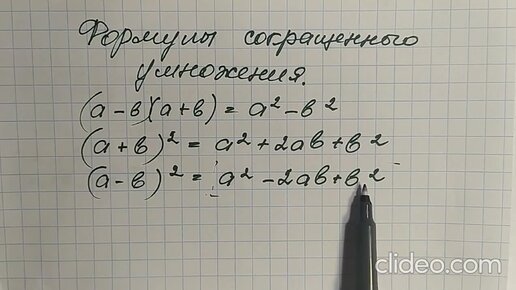 Формулы сокращенного
умножения.
(а-в)(а+в) = а² - в²
(а+в)² = а² + 2ав + в²
(а-в)² = а² - 2ав + в²
clideo.com